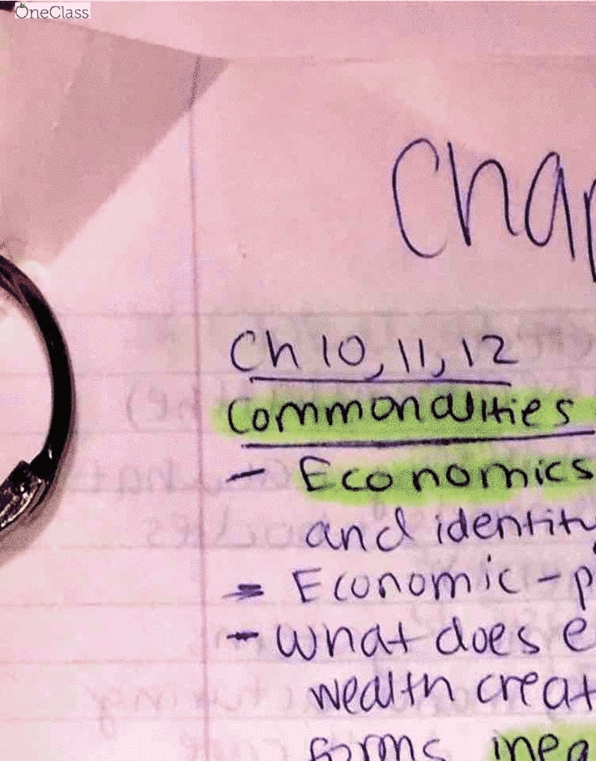 OneClass
Chap
Ch 10, 11, 12
Commonalities
- Economics
and identity
= Economic - p
- What does e
wealth creat
forms ineq